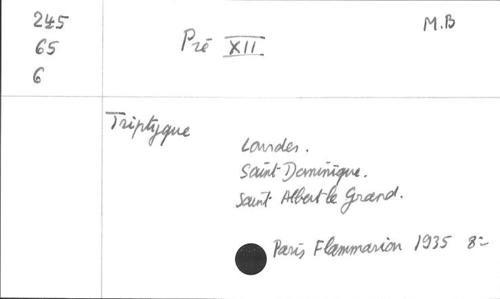 245
65
6
Pié XII
M.B
Triptyque
Lourdes.
Saint Dominique.
Saint Albert le Grand.
Paris Flammarion 1935 8=